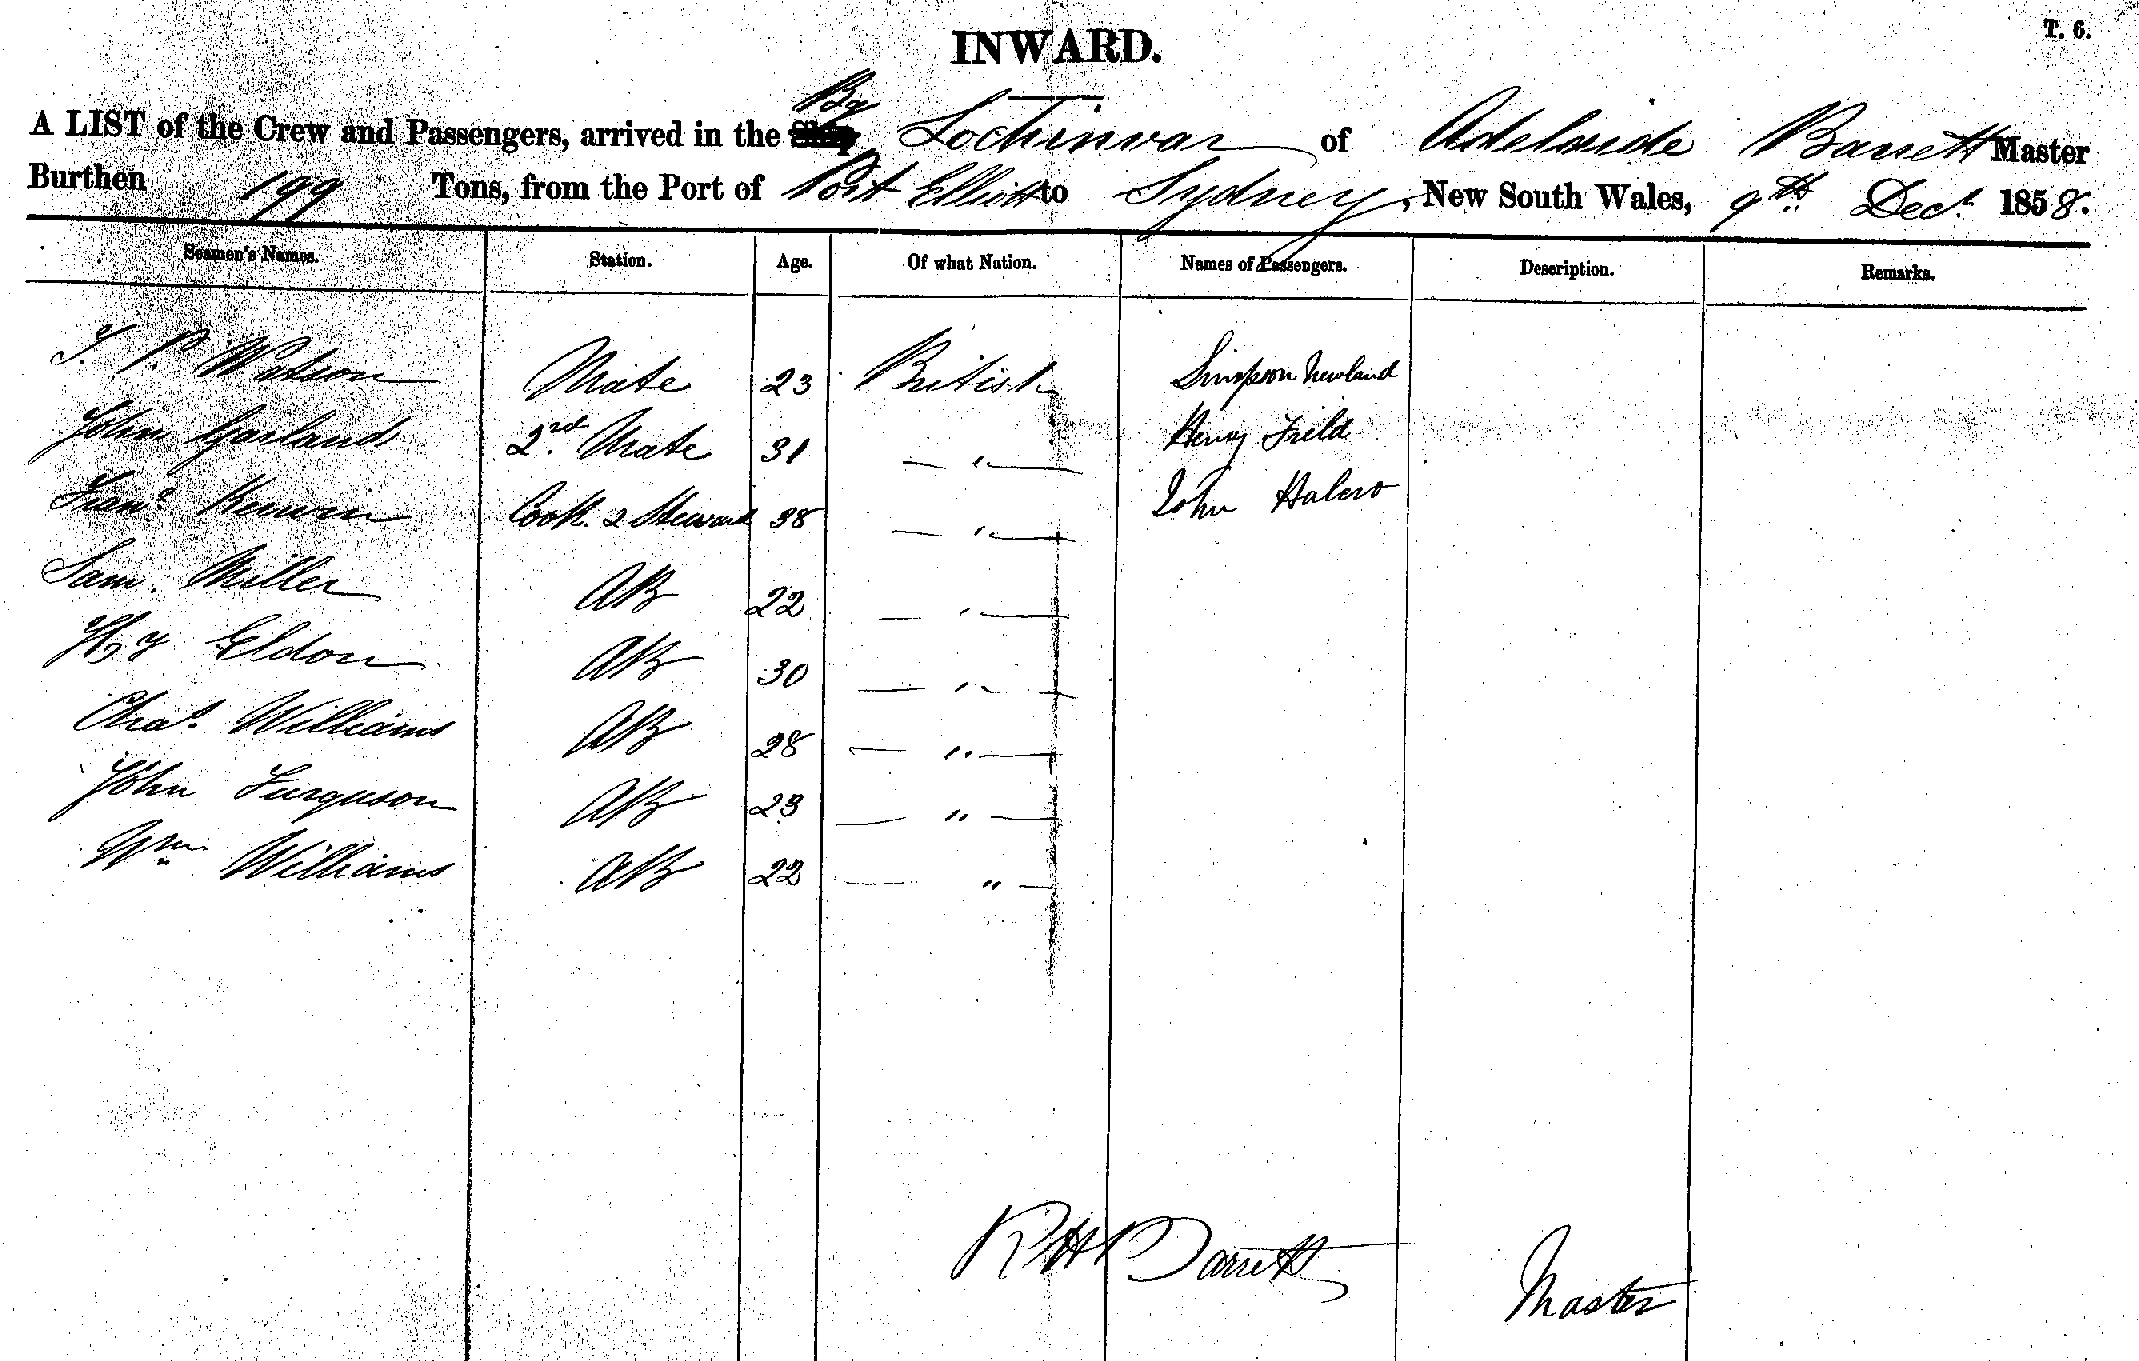 T. 6.
INWARD.
Bg
A LIST of the Crew and Passengers, arrived in the Ship Lochinvar of Adelaide Barrett Master
Burthen 199 Tons, from the Port of Port Elliott to Sydney, New South Wales, 9th Decr 1858.
Seamen's Names. Station. Age. Of what Nation. Names of Passengers. Description. Remarks.
T. P. Watson Mate 23 British Simpson Newland
John Garland 2nd Mate 31 — " — Henry Field
Cook & Steward 38 — " — John Halcro
Sam. Miller AB 22 — " —
Hy Eldon AB 30 — " —
Chas. Williams AB 28 — " —
John Furguson AB 23 — " —
Wm Williams AB 22 — " —
R H Barrett
Master